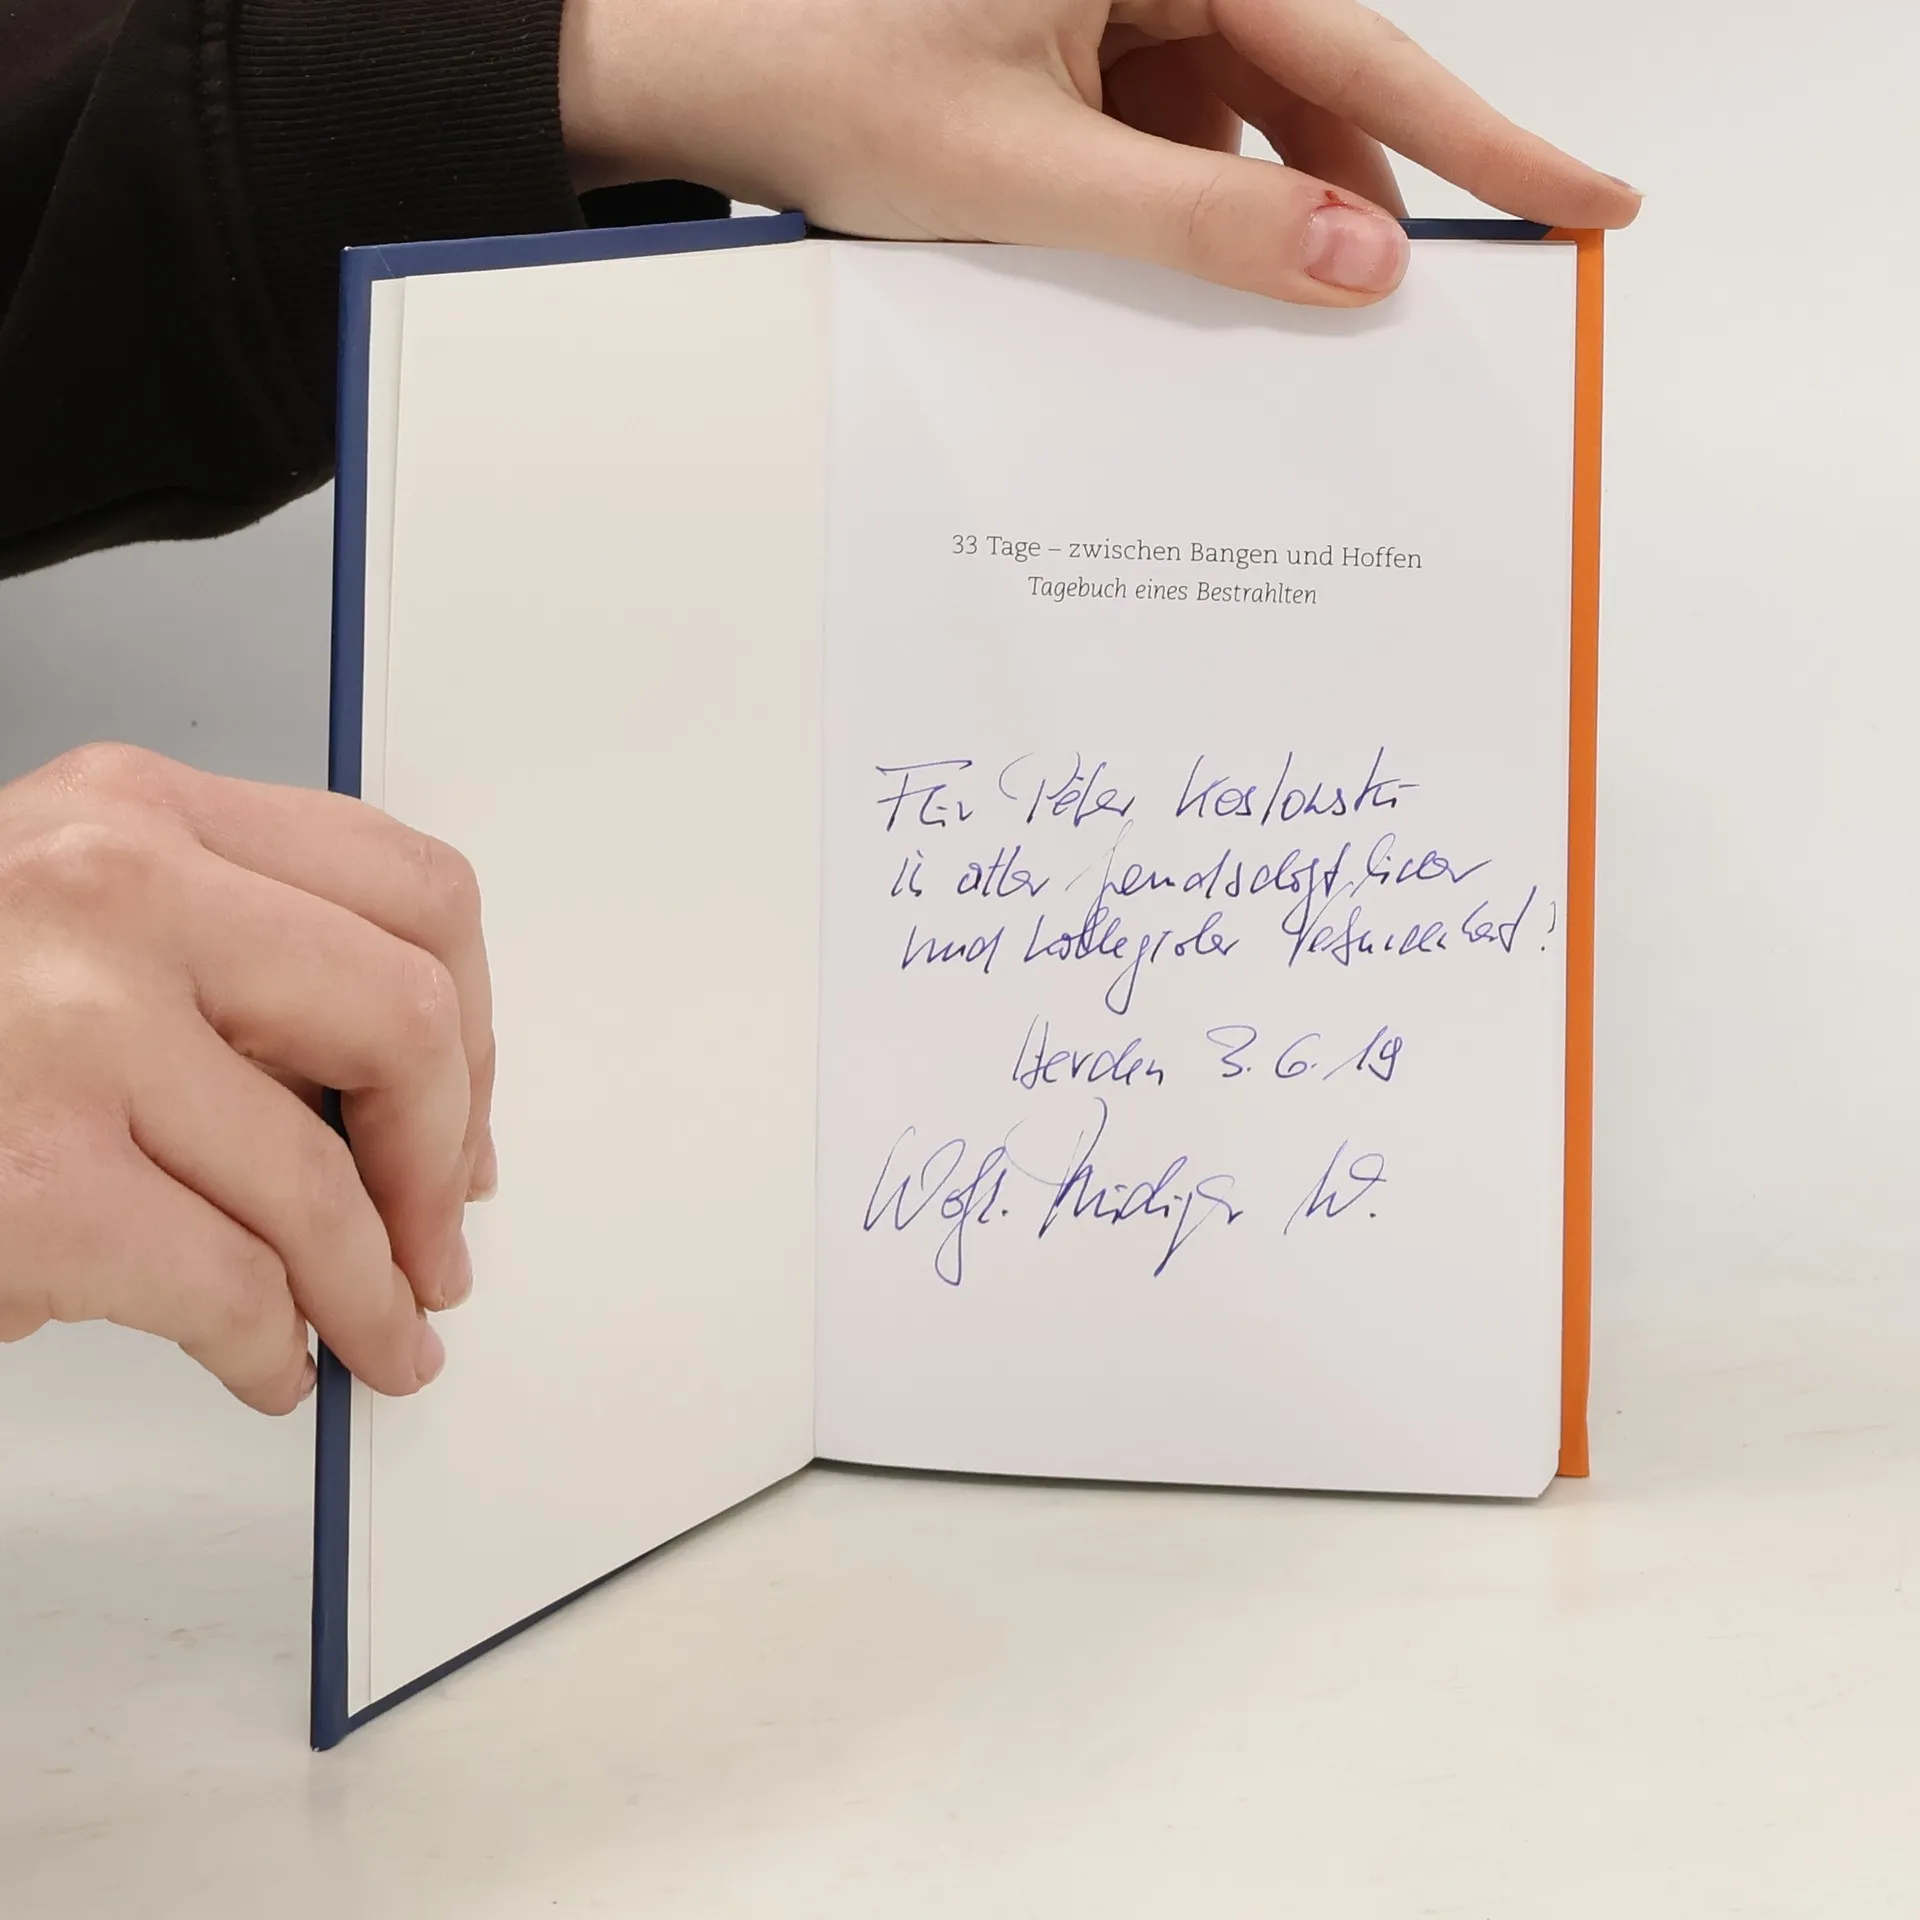 33 Tage – zwischen Bangen und Hoffen
Tagebuch eines Bestrahlten
Für Peter Koslowski
in alter freundschaftlicher
und kollegialer Verbundenheit!
Verden 3.6.19
Wolfg. Rüdiger W.